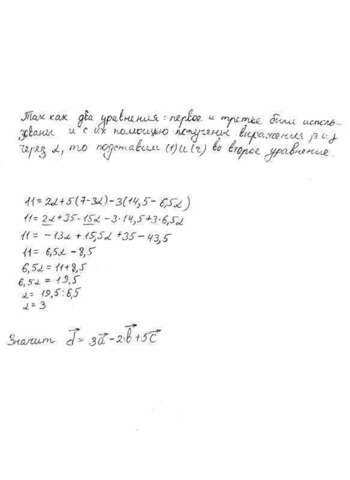 Так как два уравнения: первое и третье были исполь-
зованы и с их помощью получены выражения β и γ
через α, то подставим (1) и (2) во второе уравнение.
11 = 2α + 5(7 - 3α) - 3(14,5 - 6,5α)
11 = 2α + 35 - 15α - 3·14,5 + 3·6,5α
11 = -13α + 15,5α + 35 - 43,5
11 = 6,5α - 8,5
6,5α = 11 + 8,5
6,5α = 19,5
α = 19,5 : 6,5
α = 3
Значит d⃗ = 3a⃗ - 2·b⃗ + 5c⃗